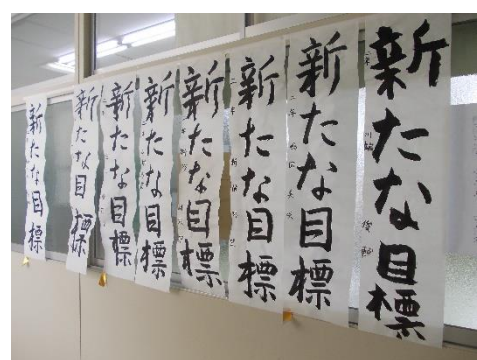 新たな目標
新たな目標
新たな目標
新たな目標
新たな目標
新たな目標
新たな目標
新たな目標